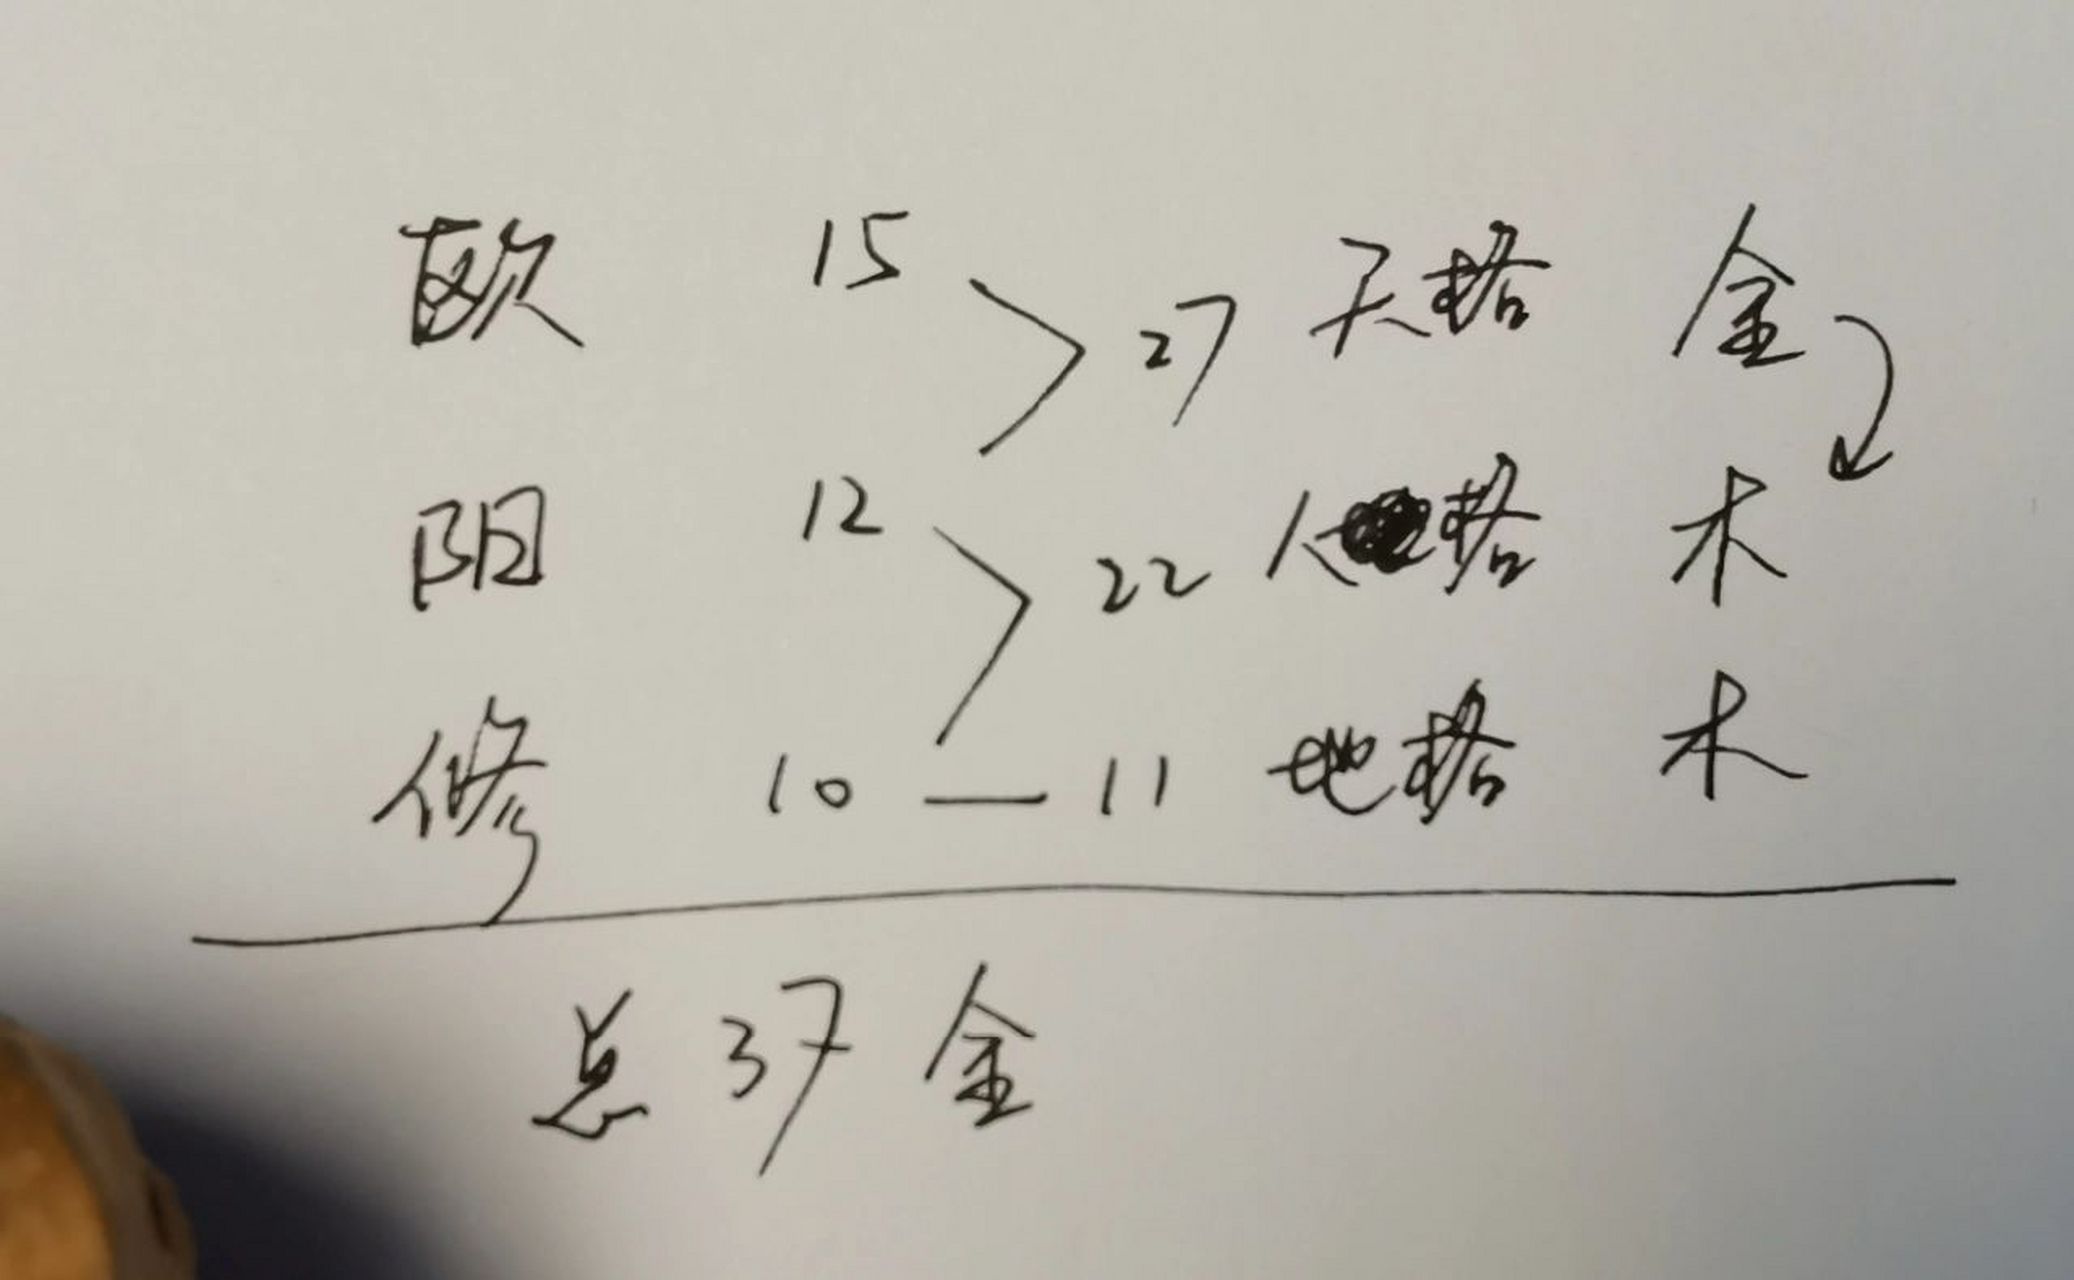 欧 15 27 天格 金
阳 12 22 人格 木
修 10 — 11 地格 木
总 37 金